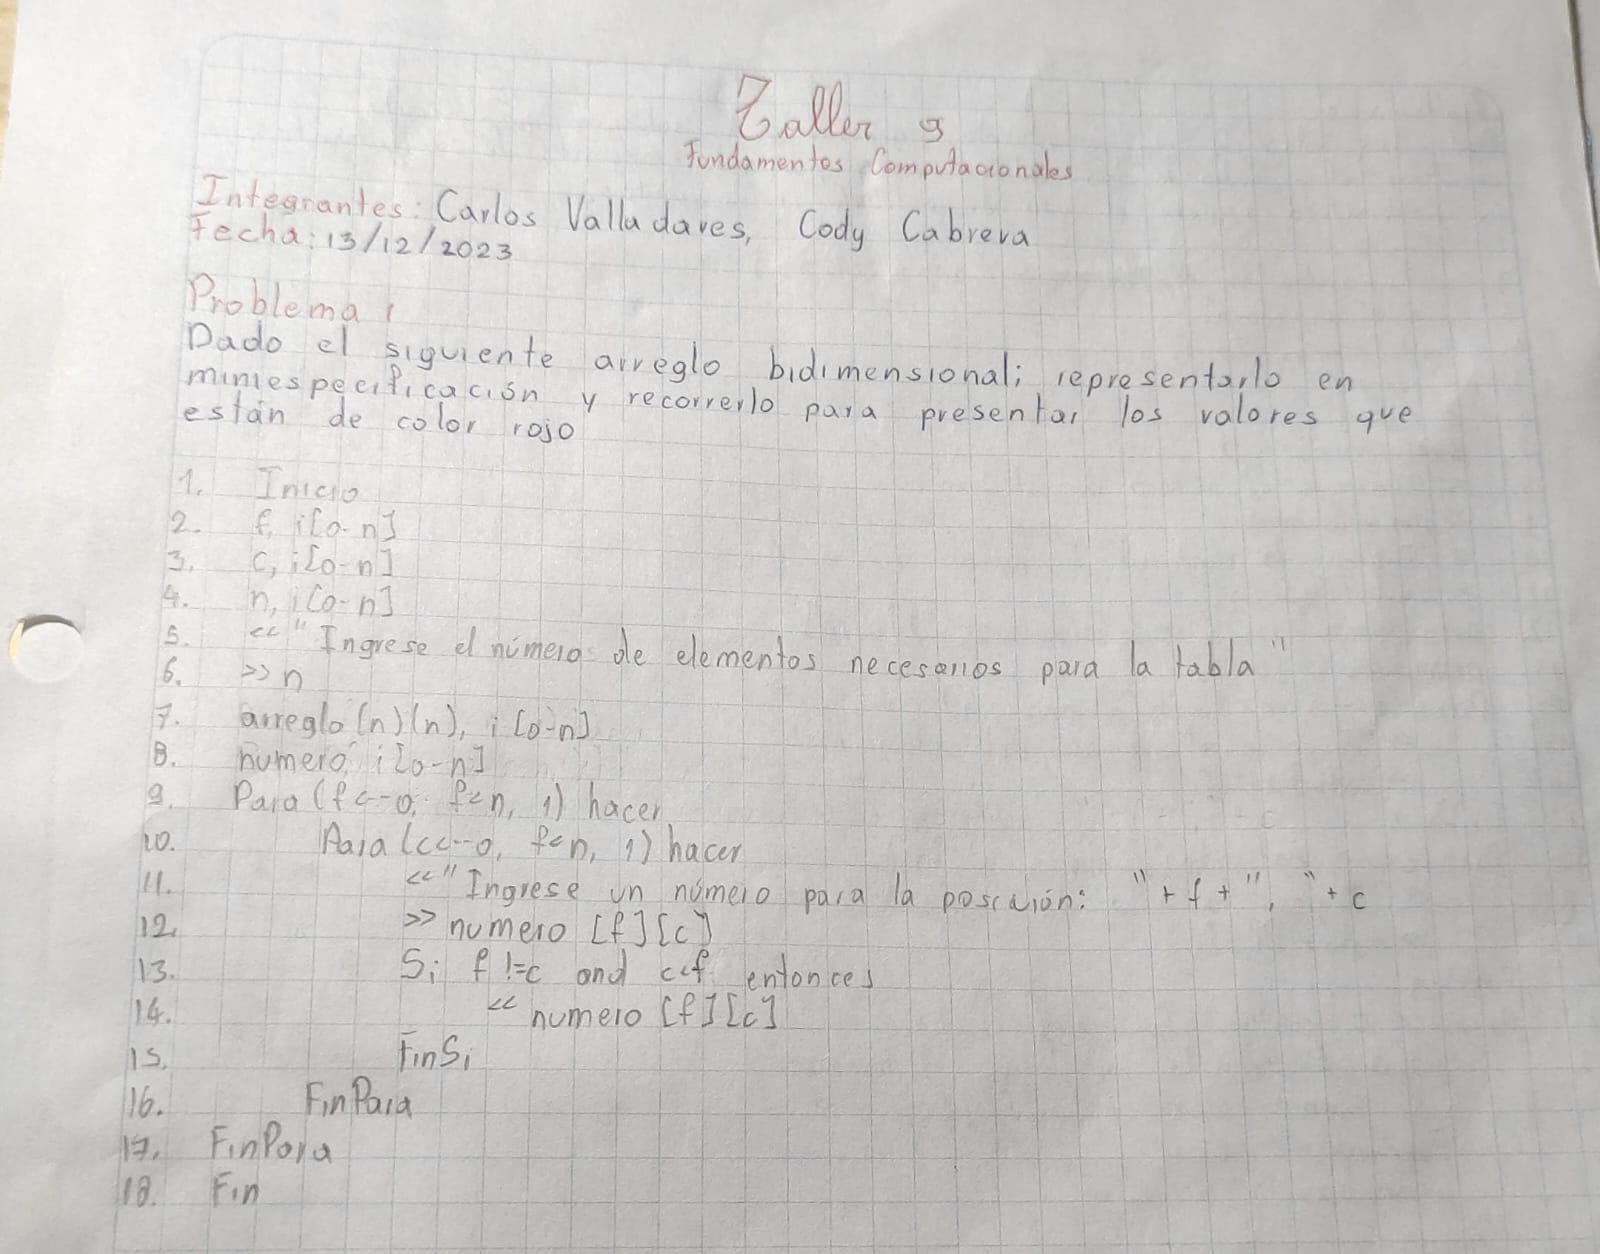 Taller 9
Fundamentos Computacionales
Integrantes: Carlos Valladares, Cody Cabrera
Fecha: 13/12/2023
Problema 1
Dado el siguiente arreglo bidimensional; representarlo en
miniespecificación y recorrerlo para presentar los valores que
están de color rojo
1. Inicio
2. f, i[0-n]
3. c, i[0-n]
4. n, i[0-n]
5. <<"Ingrese el número de elementos necesarios para la tabla"
6. >>n
7. arreglo(n)(n), i[0-n]
8. numero, i[0-n]
9. Para (f<-0, f<n, 1) hacer
10. Para (c<-0, f<n, 1) hacer
11. <<"Ingrese un número para la posición: "+f+", "+c
12. >>numero [f][c]
13. Si f !=c and c<f entonces
14. <<numero [f][c]
15. FinSi
16. FinPara
17. FinPara
18. Fin